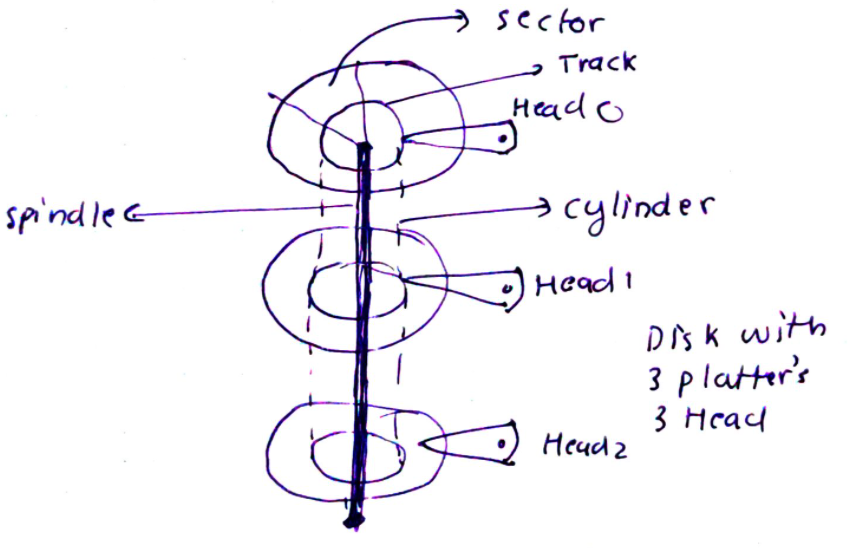 sector
Track
Head 0
spindle
cylinder
Head 1
Disk with
3 platter's
3 Head
Head 2